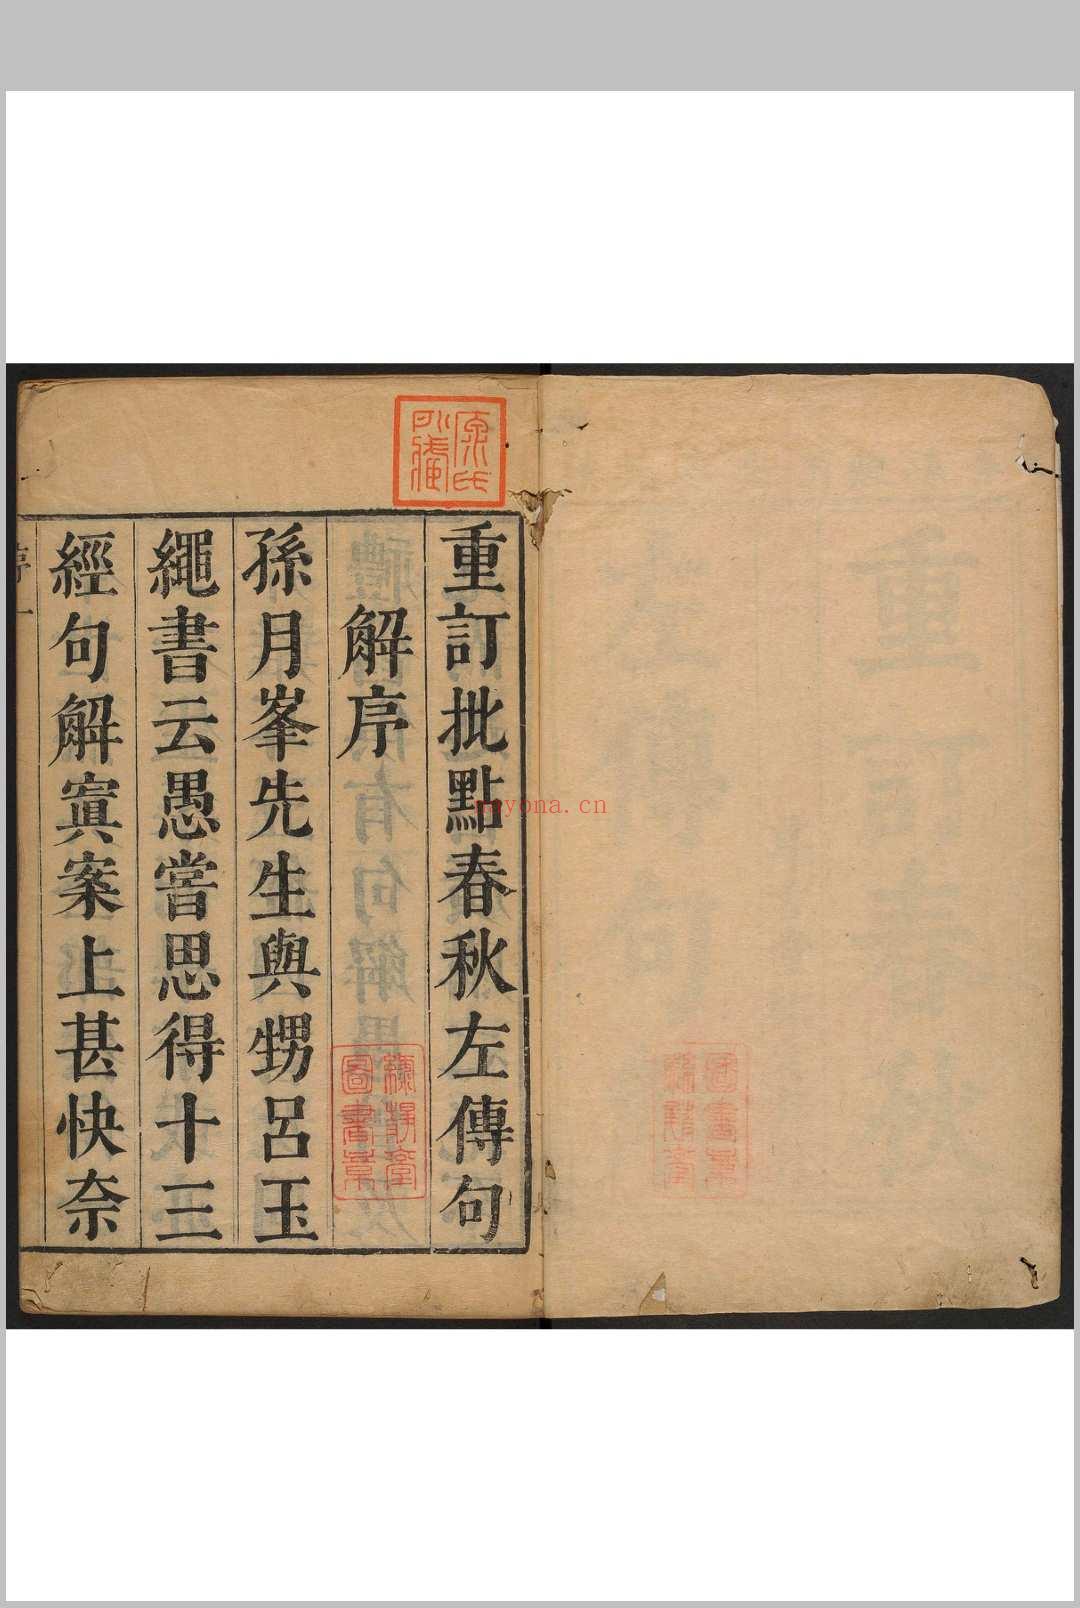 重訂批點春秋左傳句
解序
孫月峯先生與甥呂玉
繩書云愚嘗思得十三
經句解寘案上甚快奈
序
一
nayona.cn